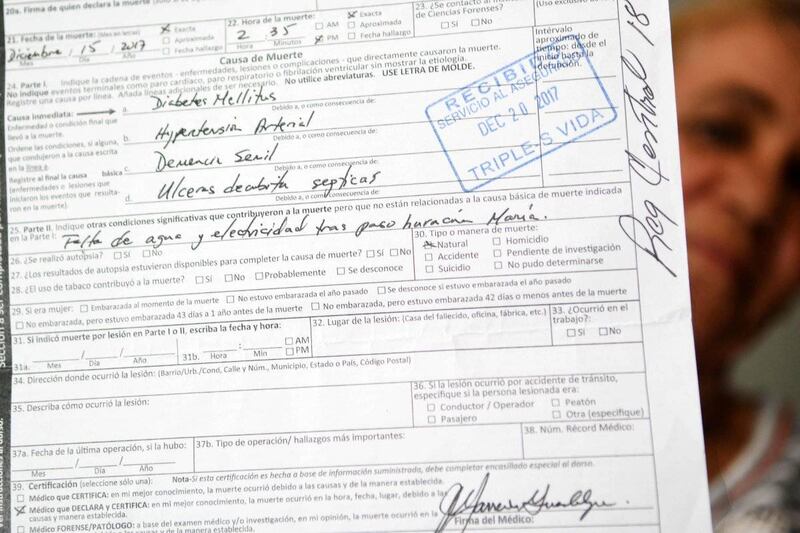 20a. Firma de quien declara la muerte:
21. Fecha de la muerte: (Mes en letras)
☒ Exacta
☐ Aproximada
☐ Fecha hallazgo
Diciembre / 15 / 2017
Mes Día Año
22. Hora de la muerte:
2 : 35
Hora Minutos
☐ AM
☒ PM
☒ Exacta
☐ Aproximada
☐ Fecha hallazgo
23. ¿Se contactó al
de Ciencias Forenses?
☐ Sí ☐ No
Causa de Muerte
24. Parte I. Indique la cadena de eventos - enfermedades, lesiones o complicaciones - que directamente causaron la muerte.
No indique eventos terminales como paro cardiaco, paro respiratorio o fibrilación ventricular sin mostrar la etiología.
Registre una causa por línea. Añada líneas adicionales de ser necesario. No utilice abreviaturas. USE LETRA DE MOLDE.
Intervalo
aproximado de
tiempo: desde el
inicio hasta la
defunción.
Causa inmediata:
Enfermedad o condición final que
llevó a la muerte.
a. Diabetes Mellitus
Debido a, o como consecuencia de:
Ordene las condiciones, si alguna,
que condujeron a la causa escrita
en la línea a.
b. Hypertensión Arterial
Debido a, o como consecuencia de:
Registre al final la causa básica
(enfermedades o lesiones que
iniciaron los eventos que resulta-
ron en la muerte).
c. Demencia Senil
Debido a, o como consecuencia de:
d. Ulceras decubita septicas
Debido a, o como consecuencia de:
RECIBIDO
SERVICIO AL ASEGURADO
DEC 20 2017
TRIPLE-S VIDA
25. Parte II. Indique otras condiciones significativas que contribuyeron a la muerte pero que no están relacionadas a la causa básica de muerte indicada
en la Parte I:
Falta de agua y electricidad tras paso huracán María.
26. ¿Se realizó autopsia? ☐ Sí ☐ No
27. ¿Los resultados de autopsia estuvieron disponibles para completar la causa de muerte? ☐ Sí ☐ No
28. ¿El uso de tabaco contribuyó a la muerte? ☐ Sí ☐ No ☐ Probablemente ☐ Se desconoce
30. Tipo o manera de muerte:
☒ Natural ☐ Homicidio
☐ Accidente ☐ Pendiente de investigación
☐ Suicidio ☐ No pudo determinarse
29. Si era mujer: ☐ Embarazada al momento de la muerte ☐ No estuvo embarazada el año pasado ☐ Se desconoce si estuvo embarazada el año pasado
☐ No embarazada, pero estuvo embarazada 43 días a 1 año antes de la muerte ☐ No embarazada, pero estuvo embarazada 42 días o menos antes de la muerte
31. Si indicó muerte por lesión en Parte I o II, escriba la fecha y hora:
31a. / /
Mes Día Año
31b. :
Hora Min
☐ AM
☐ PM
32. Lugar de la lesión: (Casa del fallecido, oficina, fábrica, etc.)
33. ¿Ocurrió en el
trabajo?:
☐ Sí ☐ No
34. Dirección donde ocurrió la lesión: (Barrio/Urb./Cond, Calle y Núm., Municipio, Estado o País, Código Postal)
35. Describa cómo ocurrió la lesión:
36. Si la lesión ocurrió por accidente de tránsito,
especifique si la persona lesionada era:
☐ Conductor / Operador ☐ Peatón
☐ Pasajero ☐ Otra (especifique)
37a. Fecha de la última operación, si la hubo:
/ /
Mes Día Año
37b. Tipo de operación/ hallazgos más importantes:
38. Núm. Récord Médico:
39. Certificación (seleccione sólo una): Nota-Si esta certificación es hecha a base de información suministrada, debe completar encasillado especial al dorso.
☐ Médico que CERTIFICA: en mi mejor conocimiento, la muerte ocurrió debido a las causas y de la manera establecida.
☒ Médico que DECLARA Y CERTIFICA: en mi mejor conocimiento, la muerte ocurrió en la hora, fecha, lugar, debido a las
causas y manera establecida.
☐ Médico FORENSE/PATÓLOGO: a base del examen médico y/o investigación, en mi opinión, la muerte ocurrió en la
Firma del Médico: